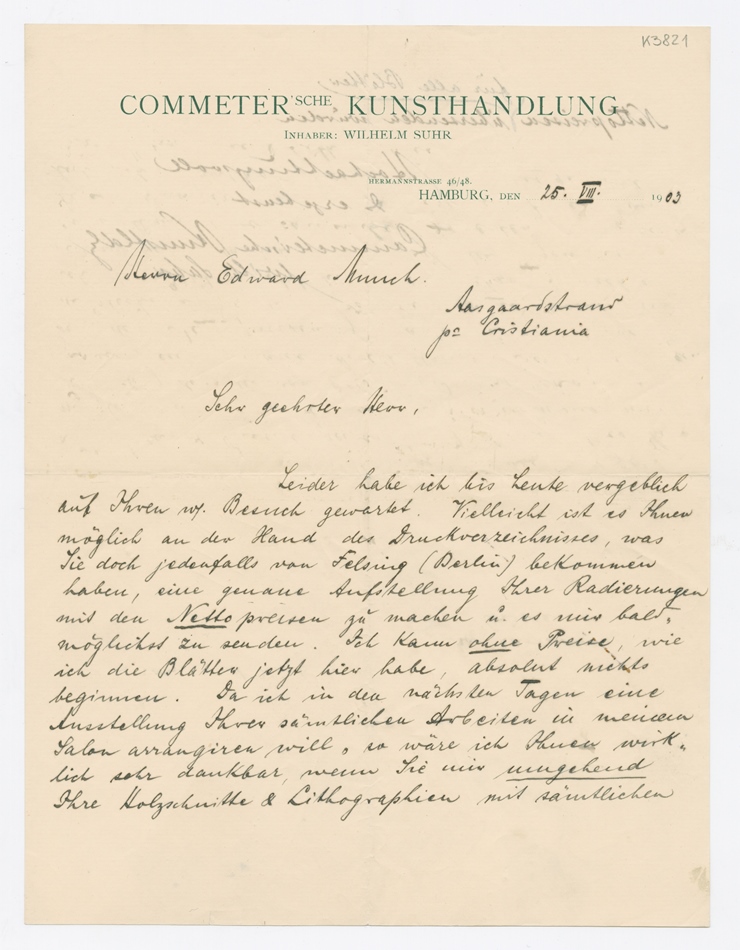 K3821
COMMETER'SCHE KUNSTHANDLUNG
INHABER: WILHELM SUHR
HERMANNSTRASSE 46/48.
HAMBURG, DEN 25. VIII. 1903
Herrn Edward Munch.
Aasgaardstrand
pr Cristiania
Sehr geehrter Herr,
Leider habe ich bis heute vergeblich
auf Ihren w. Besuch gewartet. Vielleicht ist es Ihnen
möglich an der Hand des Druckverzeichnisses, was
Sie doch jedenfalls von Felsing (Berlin) bekommen
haben, eine genaue Aufstellung Ihrer Radierungen
mit den Nettopreisen zu machen u. es mir bald-
möglichst zu senden. Ich kann ohne Preise, wie
ich die Blätter jetzt hier habe, absolut nichts
beginnen. Da ich in den nächsten Tagen eine
Ausstellung Ihrer sämtlichen Arbeiten in meinem
Salon arrangiren will, so wäre ich Ihnen wirk-
lich sehr dankbar, wenn Sie mir umgehend
Ihre Holzschnitte & Lithographien mit sämtlichen